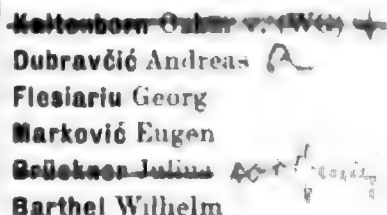 Kaltenborn Oskar v. (Wth)
Dubravčić Andreas
Flesiariu Georg
Marković Eugen
Brückner Julius
Barthel Wilhelm